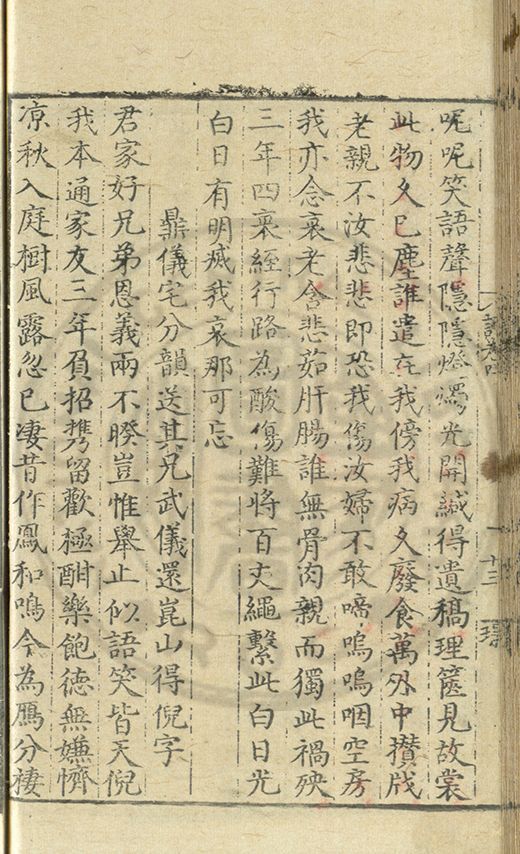 呢呢笑語聲隱隱燈燭光開緘得遺稿理篋見故裳
此物久已塵誰遣在我傍我病久廢食萬外中攢戕
老親不汝悲悲即恐我傷汝婦不敢啼嗚嗚咽空房
我亦念衰老含悲茹肝腸誰無骨肉親而獨此禍殃
三年四衰絰行路為酸傷難將百丈繩繫此白日光
白日有明滅我哀那可忘
鼎儀宅分韻送其兄武儀還崑山得倪字
君家好兄弟恩義兩不睽豈惟舉止似語笑皆天倪
我本通家友三年負招携留歡極酣樂飽德無嫌懠
凉秋入庭樹風露忽已凄昔作鳳和鳴今為鴈分棲
十三